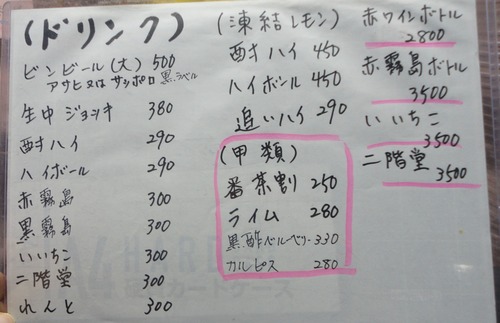 (ドリンク)
ビンビール(大) 500
アサヒ又は サッポロ 黒ラベル
生中 ジョッキ 380
酎ハイ 290
ハイボール 290
赤霧島 300
黒霧島 300
いいちこ 300
二階堂 300
れんと 300
(凍結レモン)
酎ハイ 450
ハイボール 450
追いハイ 290
(甲類)
番茶割 250
ライム 280
黒酢ベルベリー 330
カルピス 280
赤ワインボトル
2800
赤霧島ボトル
3500
いいちこ
3500
二階堂
3500